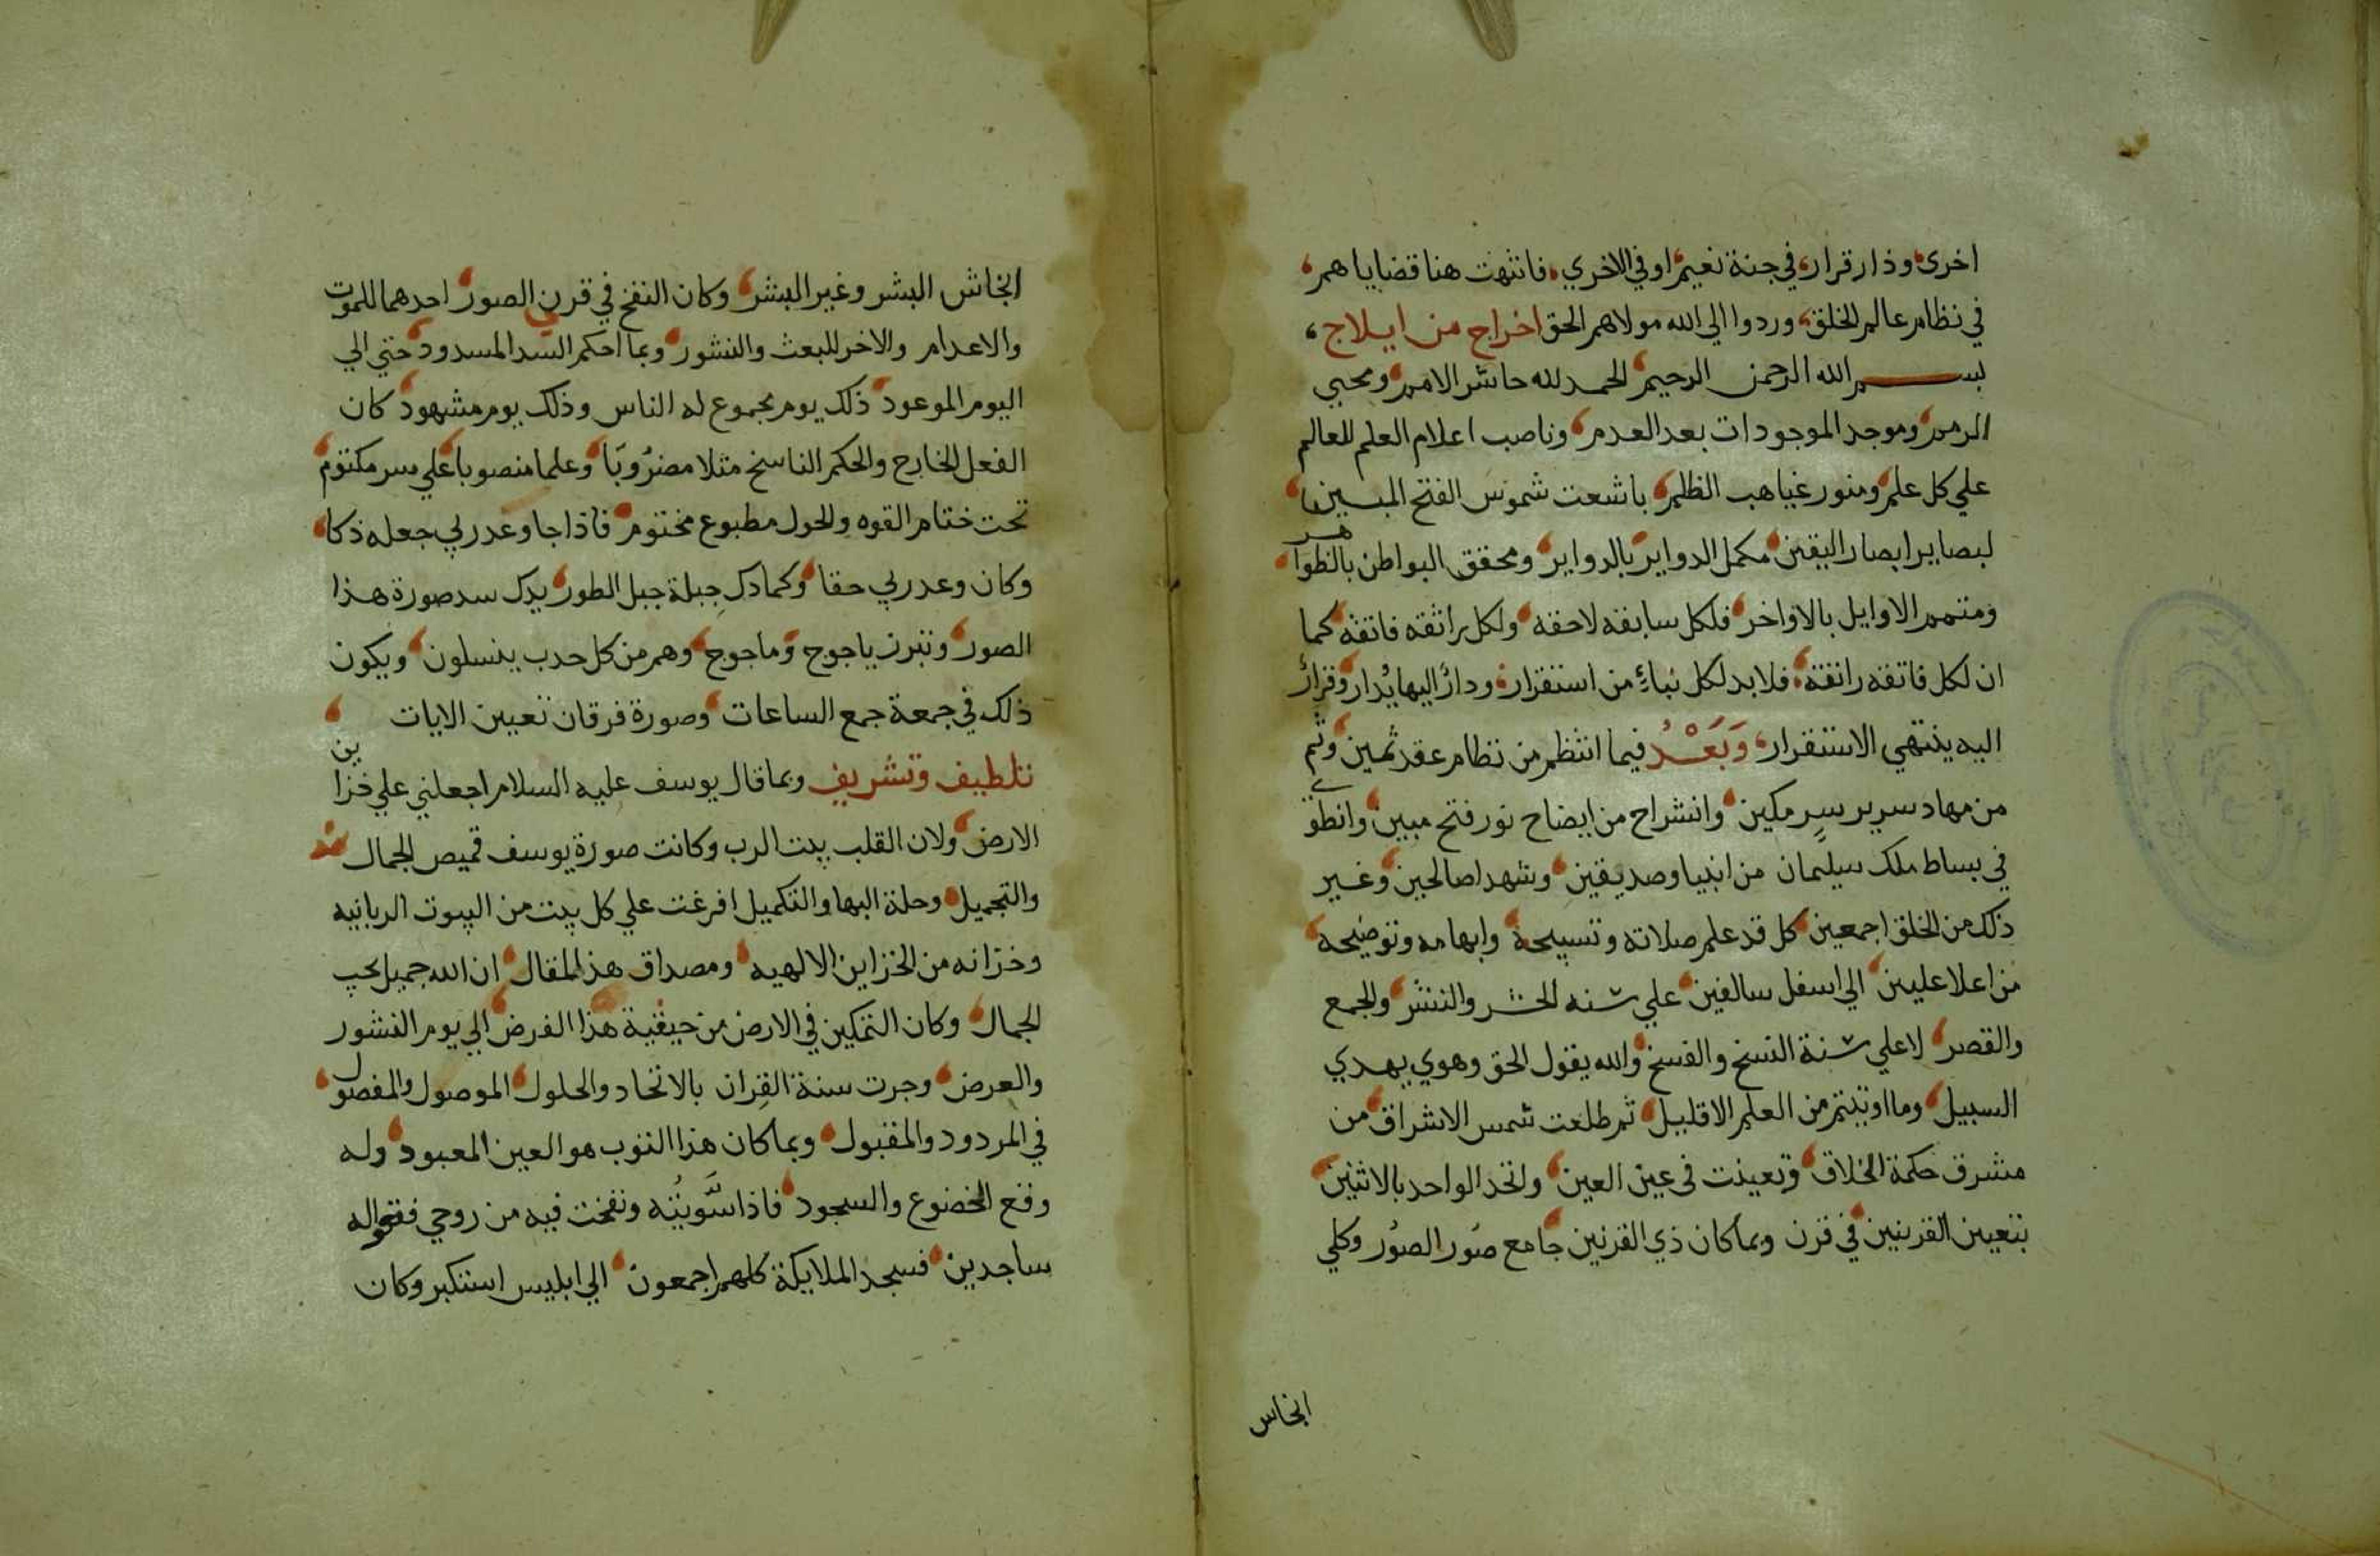 اخرى وذار قرار في جنة نعيم او في الاخري فانتهت هنا قضاياهم
في نظام عالم الخلق وردوا الي الله مولاهم الحق اخراج من ايلاج
بسم الله الرحمن الرحيم الحمد لله حاشر الامم ومحيي
الرمم وموجد الموجودات بعد العدم وناصب اعلام العلم للعالم
علي كل علم ومنور غياهب الظلم باشعت شموس الفتح المبين
لبصاير ابصار اليقين مكمل الدواير بالدواير ومحقق البواطن بالظواهر
ومتمم الاوايل بالاواخر فلكل سابقه لاحقه ولكل راتقه فاتقه كما
ان لكل فاتقه راتقة فلابد لكل نباء من استقرار ودار اليها يدار وقرار
اليه ينتهي الاستقرار وَبَعْدُ فيما انتظم من نظام عقد ثمين وتم
من مهاد سرير سر مكين وانشراح من ايضاح نور فتح مبين وانطوي
في بساط ملك سيلمان من انبيا وصديقين وشهدا صالحين وغير
ذلك من الخلق اجمعين كل قد علم صلاته وتسبيحة وابهامه وتوضيحه
من اعلا عليين الي اسفل سالفين علي سنه الحشر والنشر والجمع
والقصر لا علي سنة النسخ والفسخ والله يقول الحق وهوي يهدي
السبيل وما اوتيتم من العلم الا قليل ثم طلعت شمس الاشراق من
مشرق حكمة الخلاق وتعينت في عين العين واتخد الواحد بالاثنين
بتعيين القرنيين في قرن وبما كان ذي القرنين جامع صور الصور وكلي
انخاس
انخاش البشر وغير البشر وكان النفخ في قرن الصور احدهما للموت
والاعدام والاخر للبعث والنشور وبما احكم السد المسدود حتي الي
اليوم الموعود ذلك يوم مجموع له الناس وذلك يوم مشهود كان
الفعل الخارج والحكم الناسخ مثلا مضروبا وعلما منصوبا علي سر مكتوم
تحت ختام القوه والحول مطبوع مختوم فاذا جا وعد ربي جعله ذكا
وكان وعد ربي حقا وكما دك جبلة جبل الطور يدك سد صورة هذا
الصور وتبرن ياجوج وماجوج وهم من كل حدب ينسلون ويكون
ذلك في جمعة جمع الساعات وصورة فرقان تعيين الايات
تلطيف وتشريف وبما قال يوسف عليه السلام اجعلني علي خزاين
الارض ولان القلب بيت الرب وكانت صورة يوسف قميص الجمال
والتجميل وحلة البها والتكميل افرغت علي كل بيت من البيوت الربانيه
وخزانه من الخزاين الالهيه ومصداق هذ المقال ان الله جميل يحب
الجمال وكان التمكين في الارض من حيقية هذا الفرض الي يوم النشور
والعرض وجرت سنة القران بالاتحاد والحلول الموصول والمفصول
في المردود والمقبول وبما كان هذا الثوب هو العين المعبود وله
وقع الخضوع والسجود فاذا سويته ونفخت فيه من روحي فقعواله
ساجدين فسجد الملايكة كلهم اجمعون الي ابليس استكبر وكان